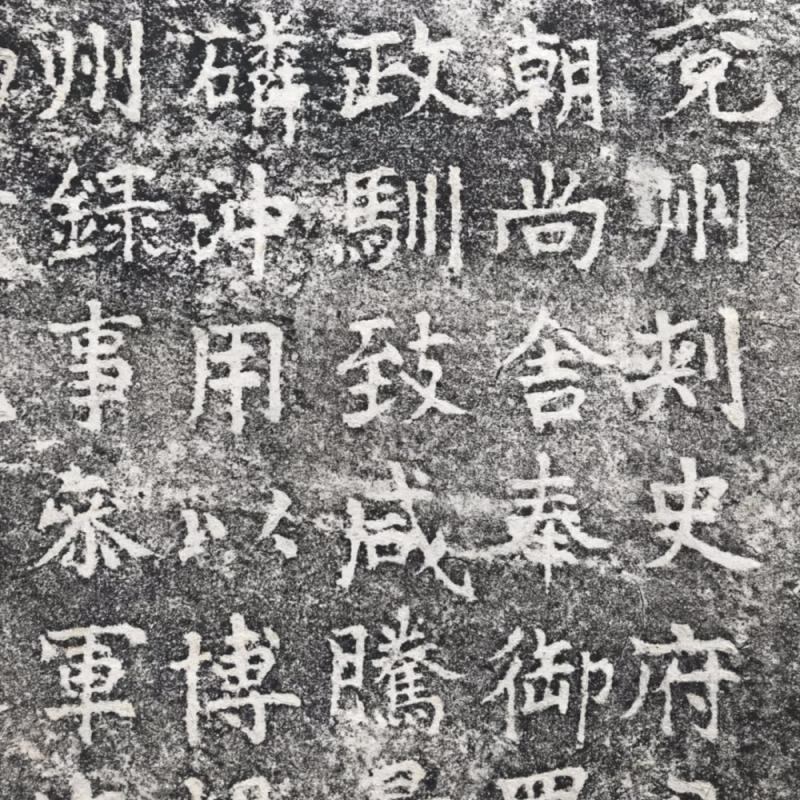 兖州刺史府
朝尚舍奉御
政馴致咸騰
磷沖用以博
州録事叅軍